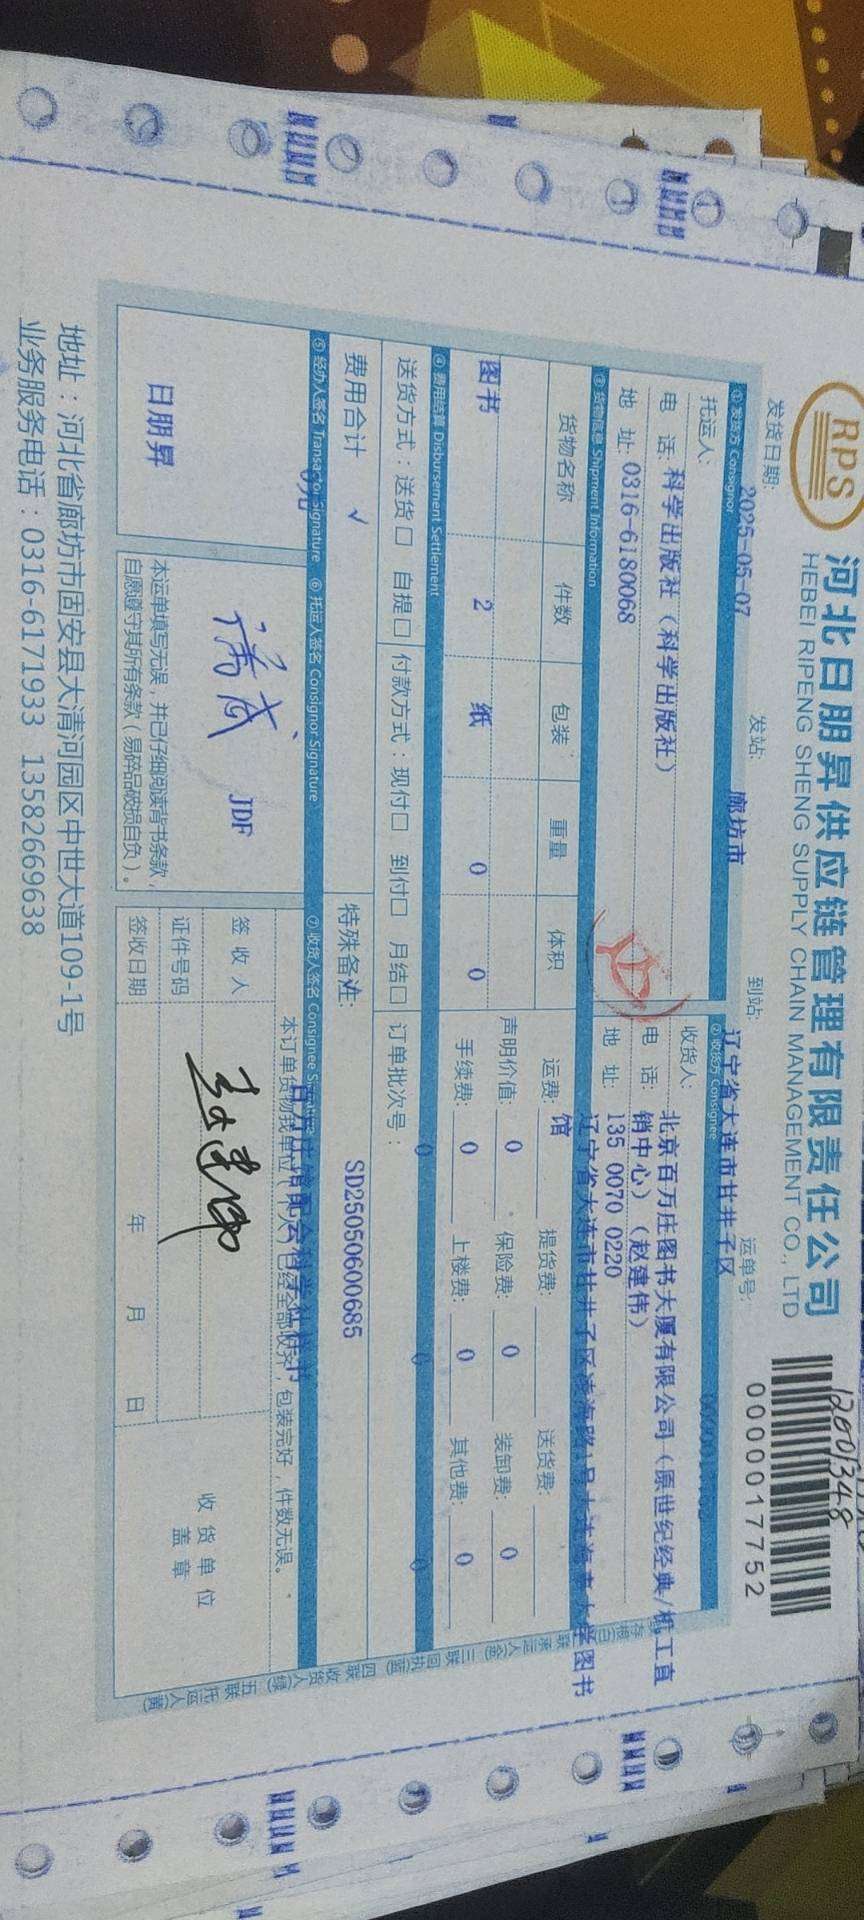 RPS
河北日朋昇供应链管理有限责任公司
HEBEI RIPENG SHENG SUPPLY CHAIN MANAGEMENT CO., LTD
12001348
0000017752
发货日期: 2025-05-07 发站: 廊坊市 到站: 辽宁省大连市甘井子区 运单号:
① 发货方 Consignor
托运人:
电 话: 科学出版社（科学出版社）
地 址: 0316-6180068
② 收货方 Consignee
收货人: 北京百万庄图书大厦有限公司（原世纪经典/机工直
销中心）（赵建伟）
电 话: 135 0070 0220
地 址: 辽宁省大连市甘井子区凌海路1号大连海事大学图书
馆
③ 货物信息 Shipment Information
货物名称 件数 包装 重量 体积
图书 2 纸 0 0
运费: 提货费: 送货费:
声明价值: 0 保险费: 0 装卸费: 0
手续费: 0 上楼费: 0 其他费: 0
④ 费用结算 Disbursement Settlement
0 0 0
送货方式：送货□ 自提□ 付款方式：现付□ 到付□ 月结□ 订单批次号：
费用合计 √ 特殊备注: SD25050600685
0元
⑤ 经办人签名 Transactor Signature ⑥ 托运人签名 Consignor Signature ⑦ 收货人签名 Consignee Signature
日朋昇
JDF
本运单填写无误，并已仔细阅读背书条款，
自愿遵守其所有条款（易碎品破损自负）。
本订单货物我单位（个人）已经全部收齐，包装完好，件数无误。
签 收 人 赵建伟
证件号码
签收日期 年 月 日
收 货 单 位
盖 章
地址：河北省廊坊市固安县大清河园区中世大道109-1号
业务服务电话：0316-6171933 13582669638